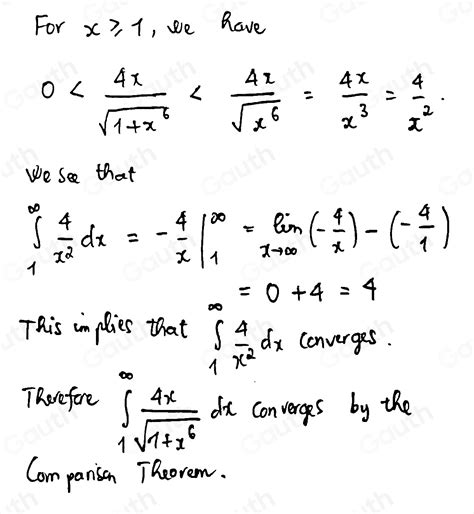 For x ⩾ 1, we have
0 < 4x/√(1+x⁶) < 4x/√(x⁶) = 4x/x³ = 4/x².
We see that
∫₁^∞ 4/x² dx = -4/x |₁^∞ = lim x→∞ (-4/x) - (-4/1)
= 0 + 4 = 4
This implies that ∫₁^∞ 4/x² dx converges.
Therefore ∫₁^∞ 4x/√(1+x⁶) dx converges by the
Comparison Theorem.